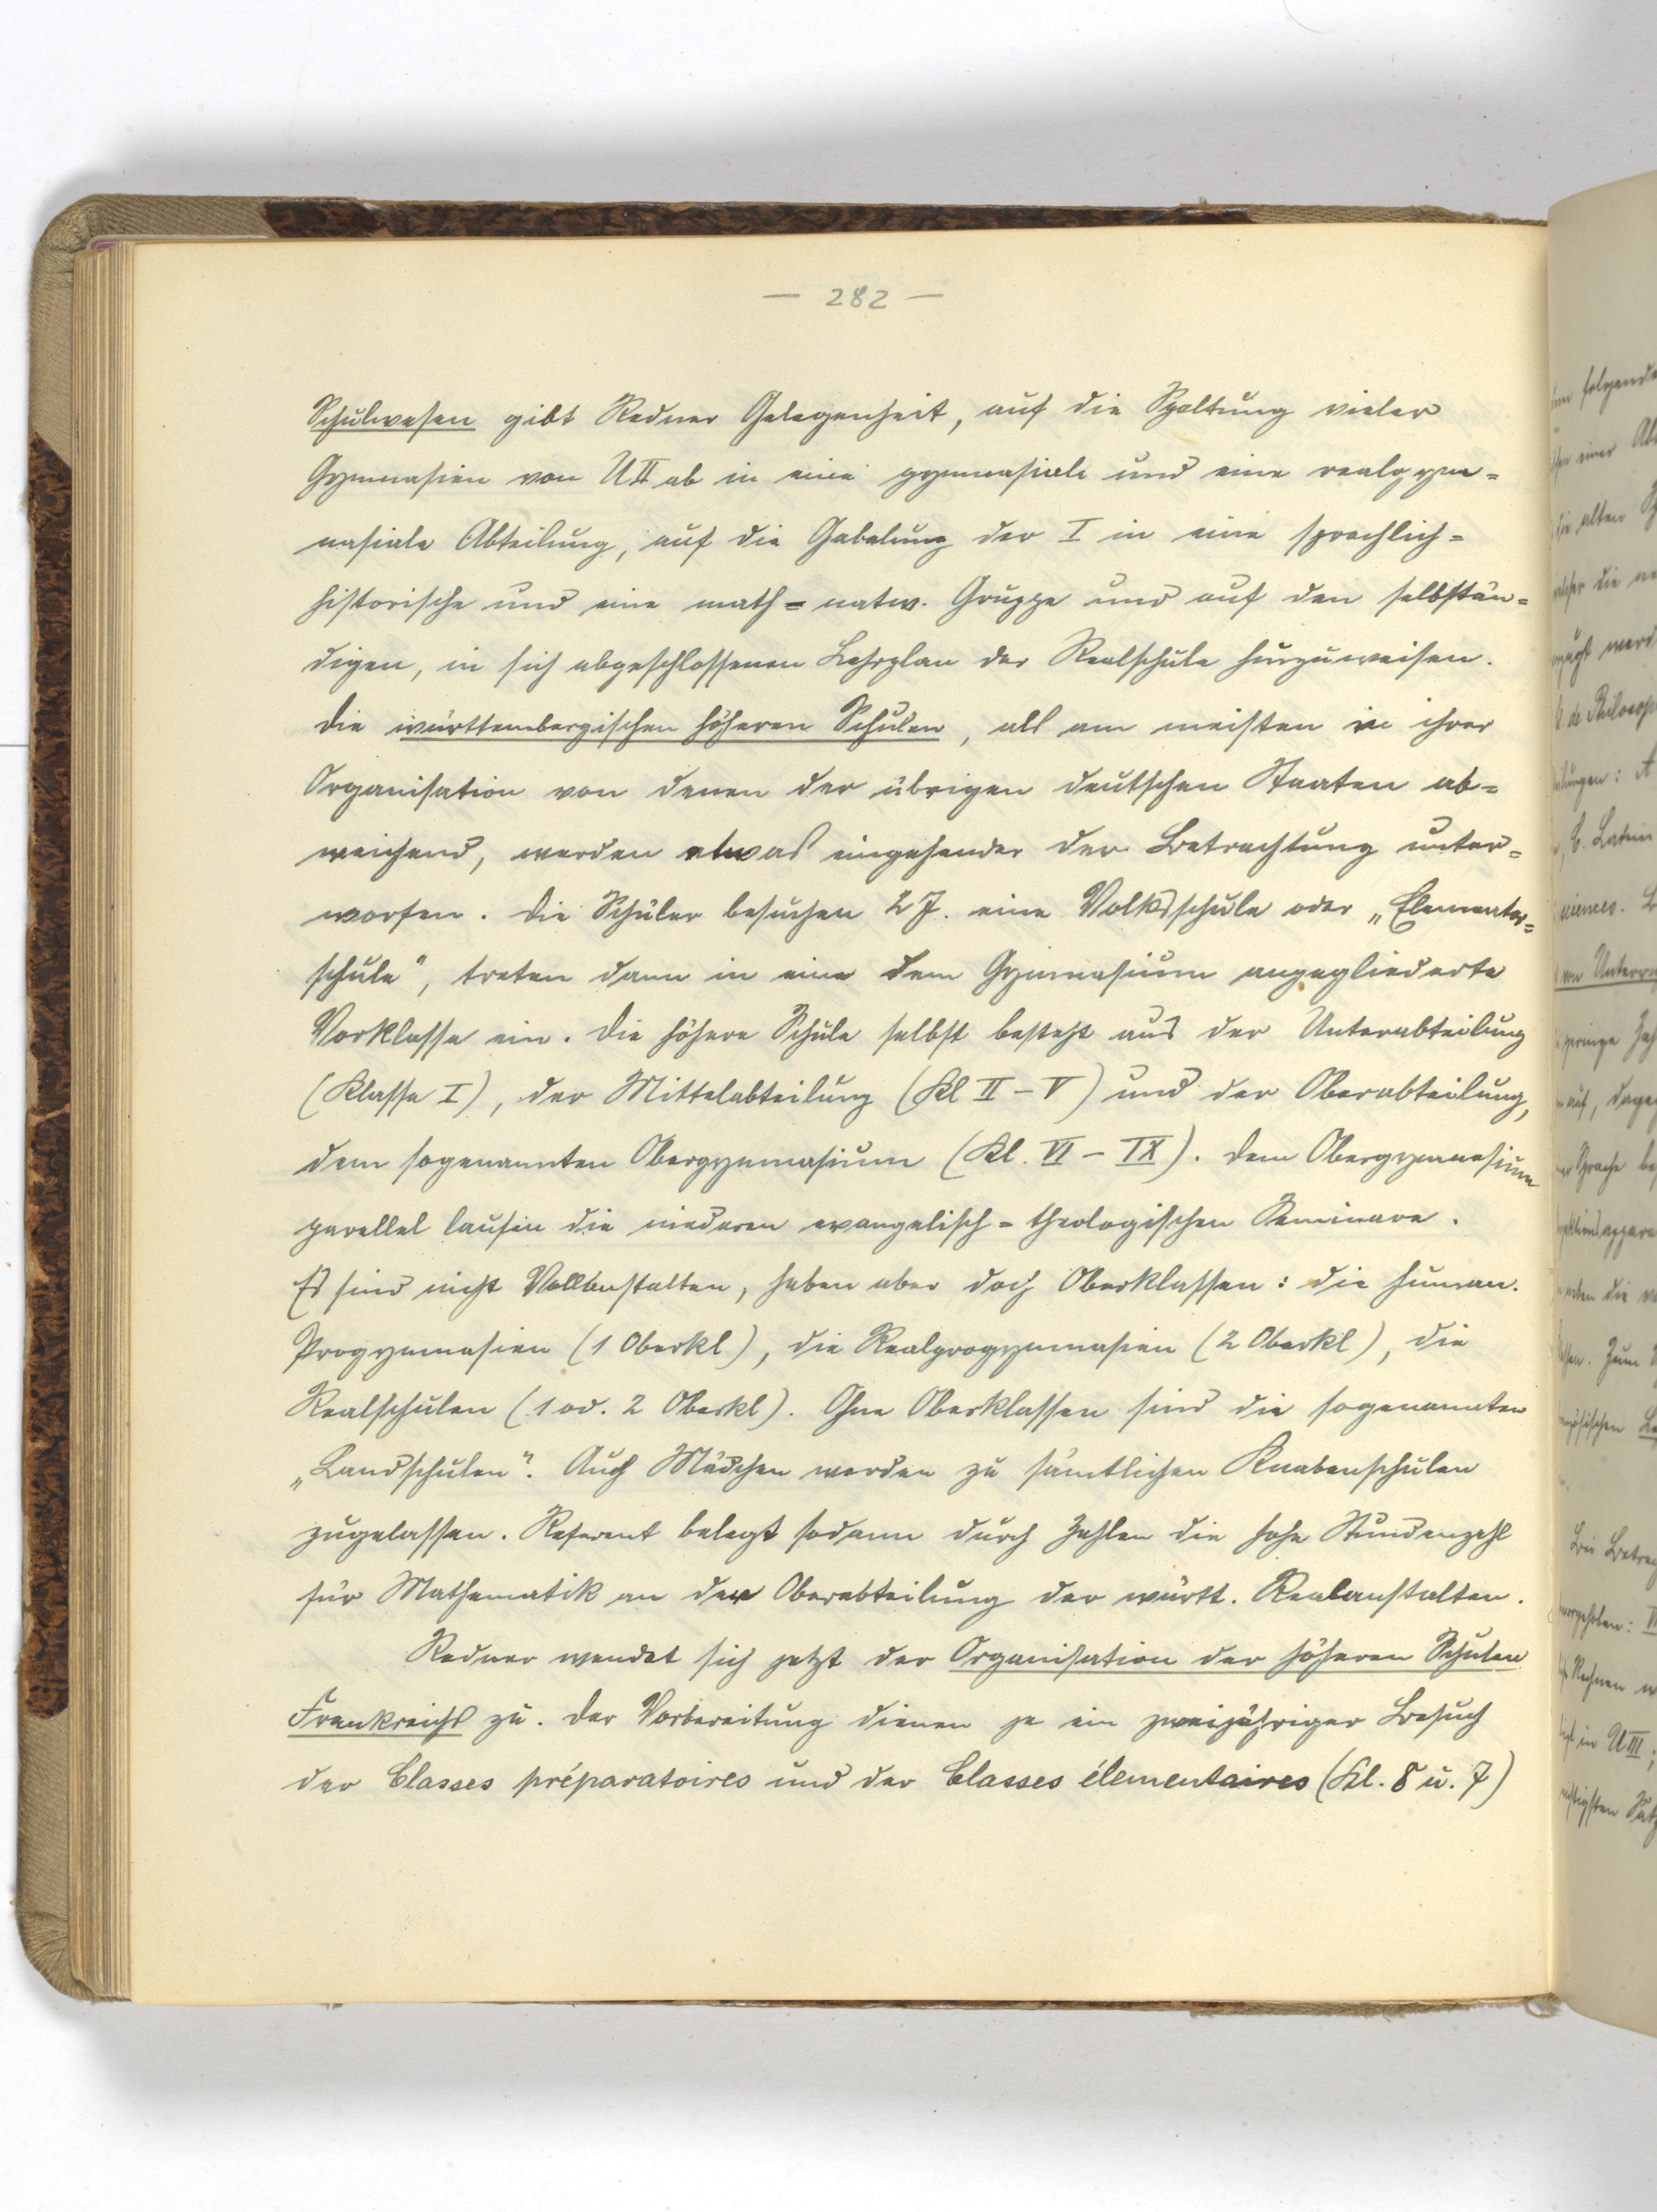 — 282 —
Schulwesen gibt Redner Gelegenheit, auf die Spaltung vieler
Gymnasien von U II ab in eine gymnasiale und eine realgym=
nasiale Abteilung, auf die Gabelung der I in eine sprachlich=
historische und eine math= natw. Gruppe und auf den selbstän=
digen, in sich abgeschlossenen Lehrplan der Realschule hinzuweisen.
Die württembergischen höheren Schulen, als am meisten in ihrer
Organisation von denen der übrigen deutschen Staaten ab=
weichend, werden etwas eingehender der Betrachtung unter=
worfen. Die Schüler besuchen 2 J. eine Volksschule oder „Elementar=
schule", treten dann in eine dem Gymnasium angegliederte
Vorklasse ein. Die höhere Schule selbst besteht aus der Unterabteilung
(Klasse I), der Mittelabteilung (Kl II – V) und der Oberabteilung,
dem sogenannten Obergymnasium (Kl. VI – IX). Dem Obergymnasium
parallel laufen die niederen evangelisch= theologischen Seminare.
Es sind nicht Vollanstalten, haben aber doch Oberklassen: die human.
Progymnasien (1 Oberkl), die Realprogymnasien (2 Oberkl), die
Realschulen (1 od. 2 Oberkl). Ohne Oberklassen sind die sogenannten
„Landschulen". Auch Mädchen werden zu sämtlichen Knabenschulen
zugelassen. Referent belegt sodann durch Zahlen die hohe Stundenzahl
für Mathematik an der Oberabteilung der württ. Realanstalten.
Redner wendet sich jetzt der Organisation der höheren Schulen
Frankreichs zu. Der Vorbereitung dienen je ein zweijähriger Besuch
der Classes préparatoires und der Classes élementaires (Kl. 8 u. 7)